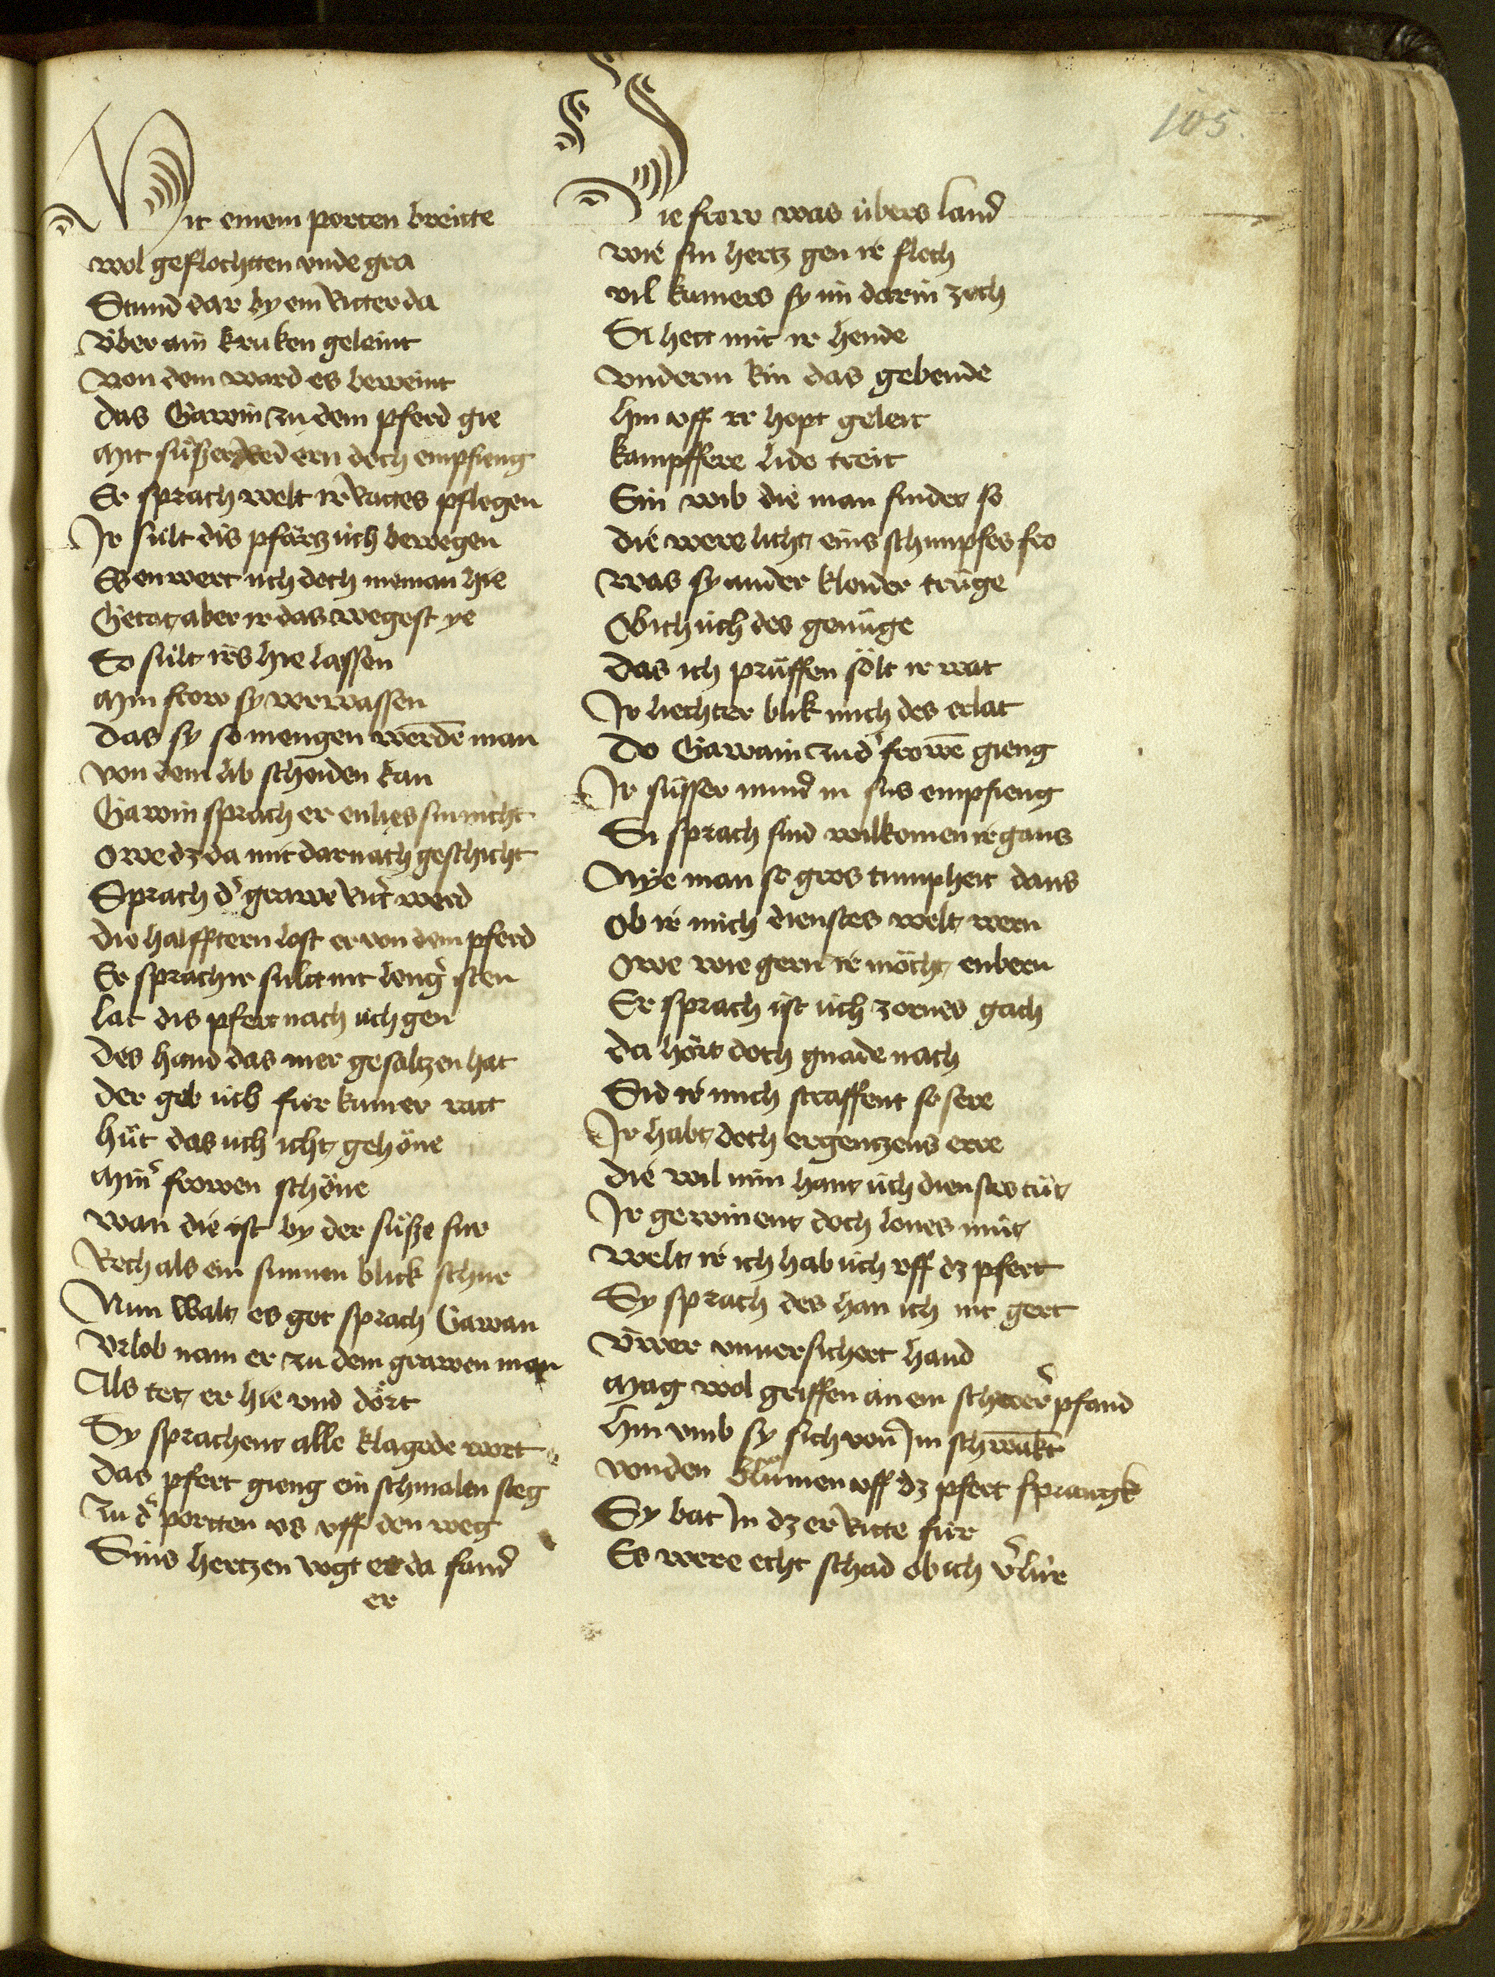 105.
Mit einem porten breitte
wol geflochtten vnde gra
Stund dar by ein Ritter da
Vber ain kruken geleint
Von dem ward es beweint
das Gawin zu dem pferd gie
Mit süßer red ern doch empfieng
Er sprach welt ir Rittes pflegen
Ir sült dis pfärtz üch bewegen
Es enwert üch doch nieman hie
Getät aber ir das wegest ye
So sült irs hie lassen
Min frow sy verwassen
Das sy so mengen werdē man
von dem lib schaiden kan
Gawin sprach er enlies sin nicht
Owe dz da mit darnach geschicht
Sprach dˀ grawe Ritˀ werd
die halfftern lost er von dem pferd
Er sprach ir sült nit lengˀ sten
Lat dis pfert nach üch gen
des hand das mer gesaltzen hat
der geb üch fur kumer ratt
hüt das üch icht gehöne
Minˀ frowen schöne
wan die ist by der süße sur
Recht als ein sunnen blick schur
Nun walt es got sprach Gawan
Vrlob nam er zu dem grawen man
Als tet er hie vnd dört
Sy sprachent alle klagede wort
das pfert gieng ein schmalen steg
zu dˀ portten vs vff den weg
Sins hertzen vogt er da fand
er
Die frow was übers land
wie sin hertz gen ir floch
vil kumers sy im darin zoch
Si hett mit ir hende
vnderm kin das gebende
hin vff ir hopt geleit
kampffere lide treit
Ein wib die man findet so
die were licht eins schimpfes fro
was sy ander klaider trüge
Ob ich üch des genüge
das ich prüffen sölt ir wat
Ir liechter blik mich des erlat
Do Gawain zu dˀ frowē gieng
Ir süsser mund in sus empfieng
Si sprach sind wilkomen ir gans
Nye man so gros tumpheit dans
ob ir mich dienstes welt wern
Owe wie gern ir möcht enbern
Er sprach ist üch zornes gach
da hört doch gnade nach
Sid ir mich straffent so sere
Ir habt doch ergentzens erre
die wil min hant üch dienstes tüt
Ir gewinent doch lones müt
welt ir ich hab üch vff dz pfert
Sy sprach des han ich nit gert
Vwer vnuersichert hand
Mag wol griffen an ein schwerˀ pfand
hin vmb sy sich von Im schwäkt
von den blümen vff dz pfert sprangk
Sy bat In dz er Ritte für
Es were echt schad ob ich vˀlür